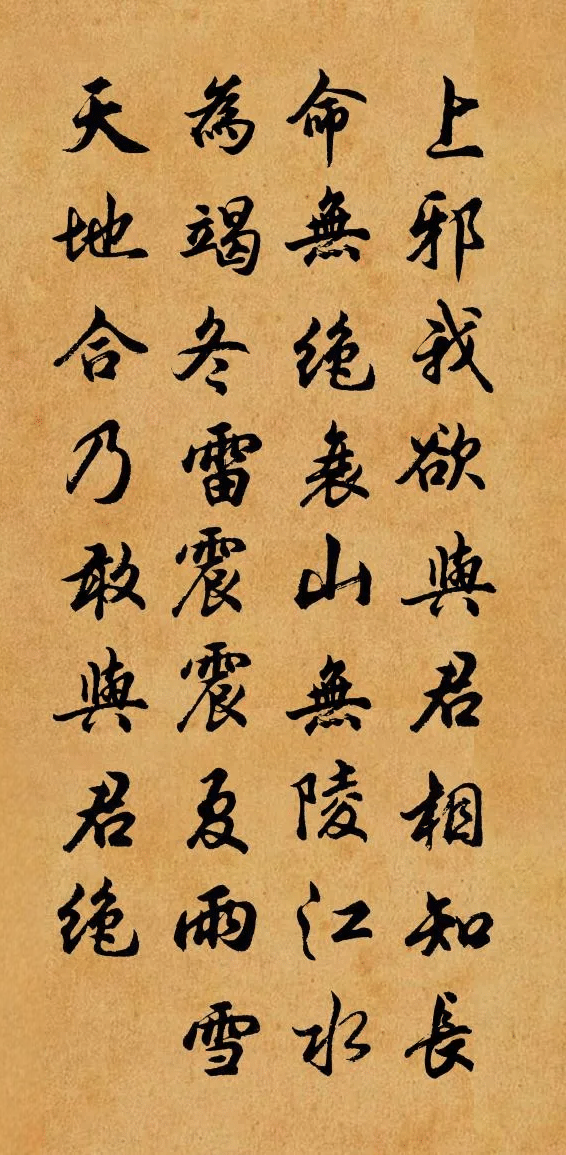 上邪我欲與君相知長
命無絶衰山無陵江水
為竭冬雷震震夏雨雪
天地合乃敢與君絶